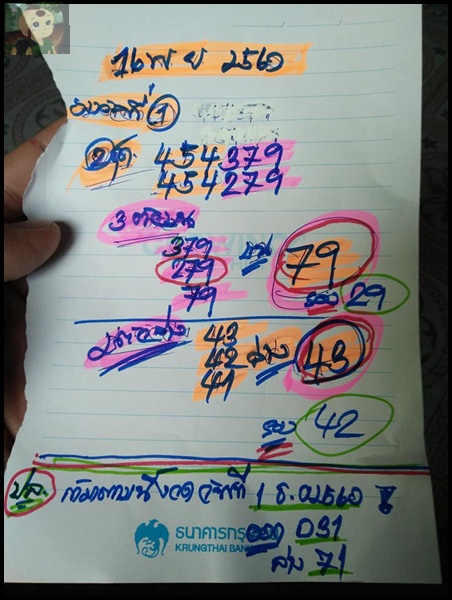 16 พ ย 2560
งวดที่ 1
2 ชุด. 454379
454279
3 ตัวบน
379
279
79
บน 79
รอง 29
2 ตัวล่าง 43
42
41
ล่าง 43
รอง 42
ปล. งวดวันที่ 1 ธ.ค.2560
ธนาคารกรุงไทย
KRUNGTHAI BANK
ออก 031
ล่าง 71